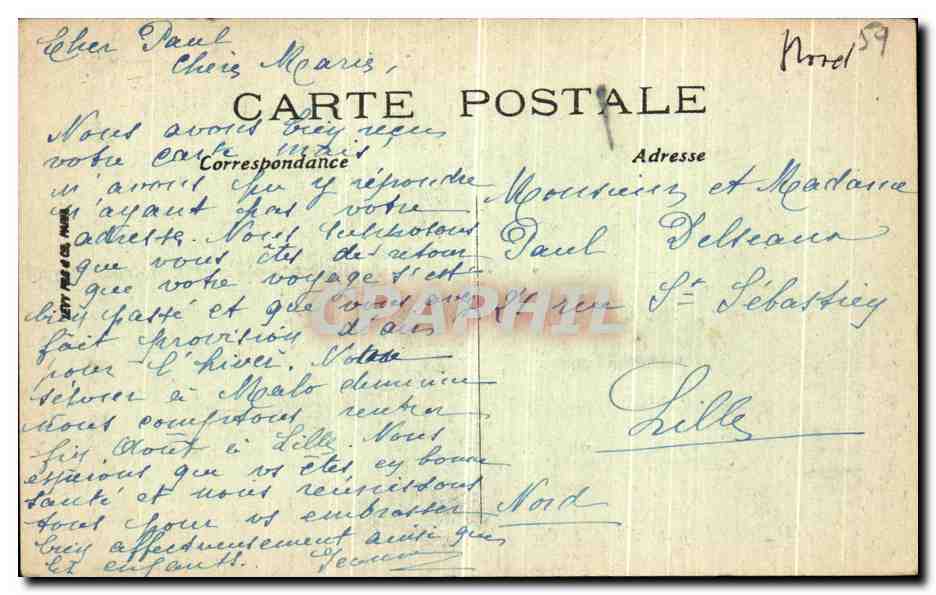 Cher Paul
Chère Marie,
Nord 59
CARTE POSTALE
Correspondance
Adresse
Nous avons bien reçu
votre carte mais
n'avons pu y répondre
n'ayant pas votre
adresse. Nous supposons
que vous êtes de retour
que votre voyage s'est
bien passé et que vous avez
fait provision d'air
pour l'hiver. Notre
séjour à Malo diminue
nous comptons rentrer
fin Août à Lille. Nous
espérons que vs êtes en bonne
santé et nous réunissons
tous pour vs embrasser
bien affectueusement ainsi que
les enfants.
Monsieur et Madame
Paul
rue St Sébastien
Lille
Nord
LEVY FILS & CIE, PARIS
CPAPHIL